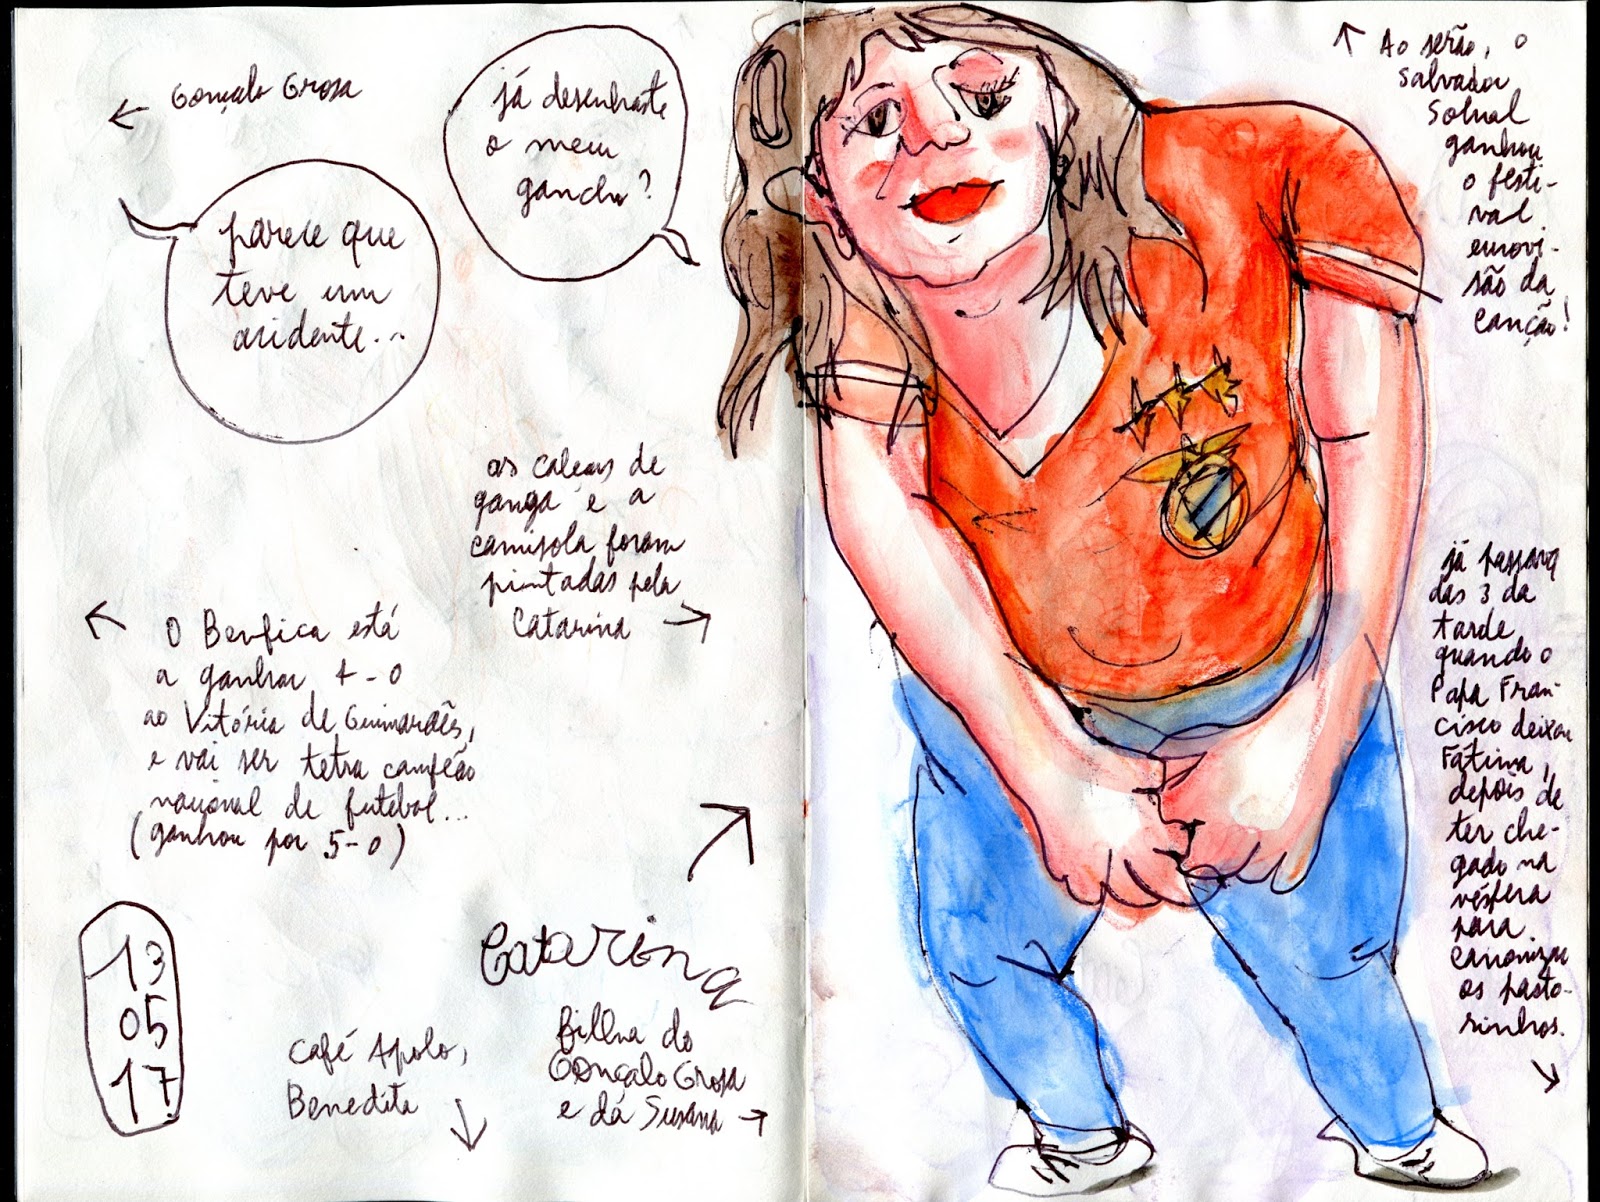 Gonçalo Grosa
já desenhaste
o meu
gancho?
parece que
teve um
acidente...
as calças de
ganga e a
camisola foram
pintadas pela
Catarina
O Benfica está
a ganhar 4-0
ao Vitória de Guimarães,
e vai ser tetra campeão
nacional de futebol...
(ganhou por 5-0)
13
05
17
Café Apolo,
Benedita
Catarina
filha do
Gonçalo Grosa
e da Susana
Ao serão, o
Salvador
Sobral
ganhou
o festi-
val
eurovi-
são da
canção!
já passava
das 3 da
tarde
quando o
Papa Fran-
cisco deixou
Fátima,
depois de
ter che-
gado na
véspera
para
canonizar
os pasto-
rinhos.